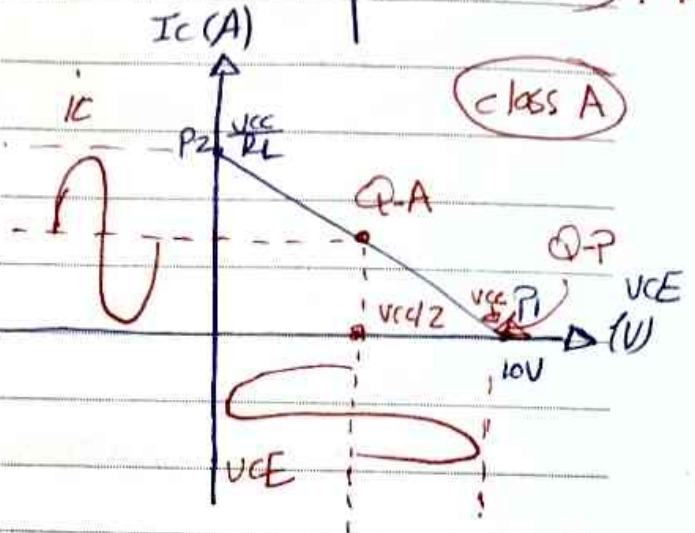 Ic (A)
class A
IC
P2 VCC/RL
Q-A
Q-P
VCC P1
VCE
(V)
VCC/2
10V
VCE